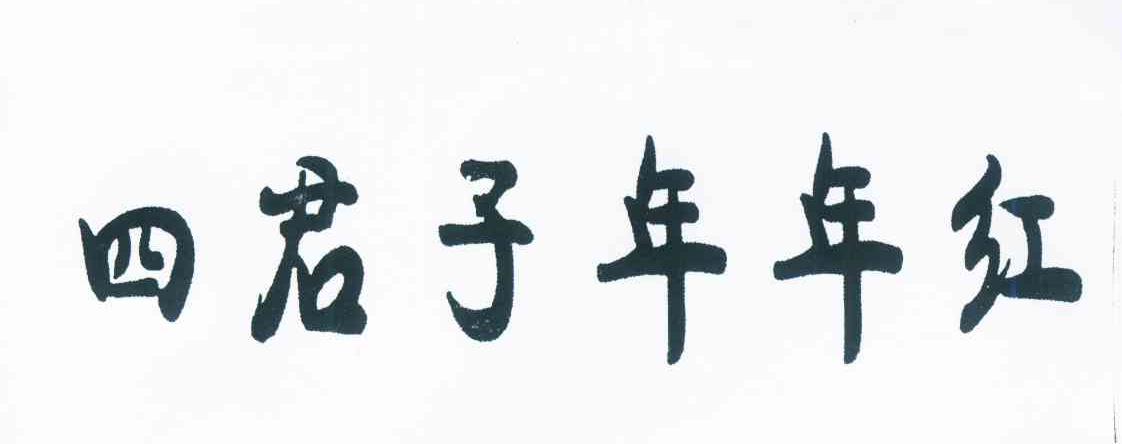 四君子年年红